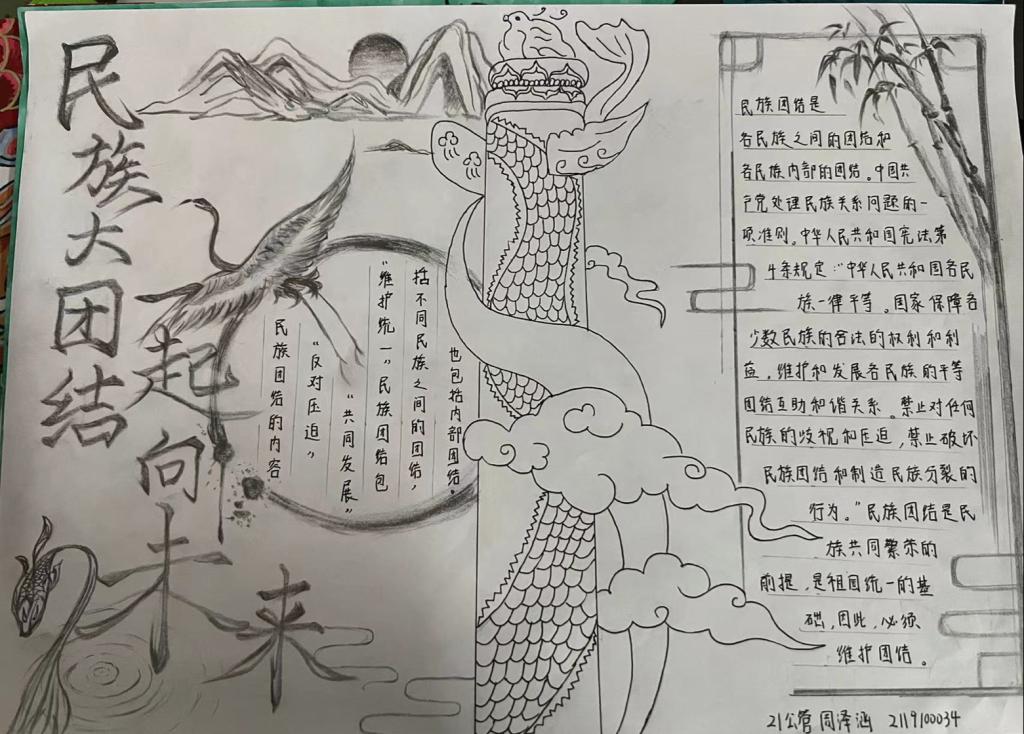 民族大团结
一起向未来
民族团结的内容
“反对压迫”
“共同发展”
“维护统一”民族团结包
括不同民族之间的团结，
也包括内部团结。
民族团结是
各民族之间的团结和
各民族内部的团结。中国共
产党处理民族关系问题的一
项准则。中华人民共和国宪法第
4条规定：“中华人民共和国各民
族一律平等。国家保障各
少数民族的合法的权利和利
益，维护和发展各民族的平等
团结互助和谐关系。禁止对任何
民族的歧视和压迫，禁止破坏
民族团结和制造民族分裂的
行为。”民族团结是民
族共同繁荣的
前提，是祖国统一的基
础，因此，必须
维护团结。
21公管 周泽涵 2119100034